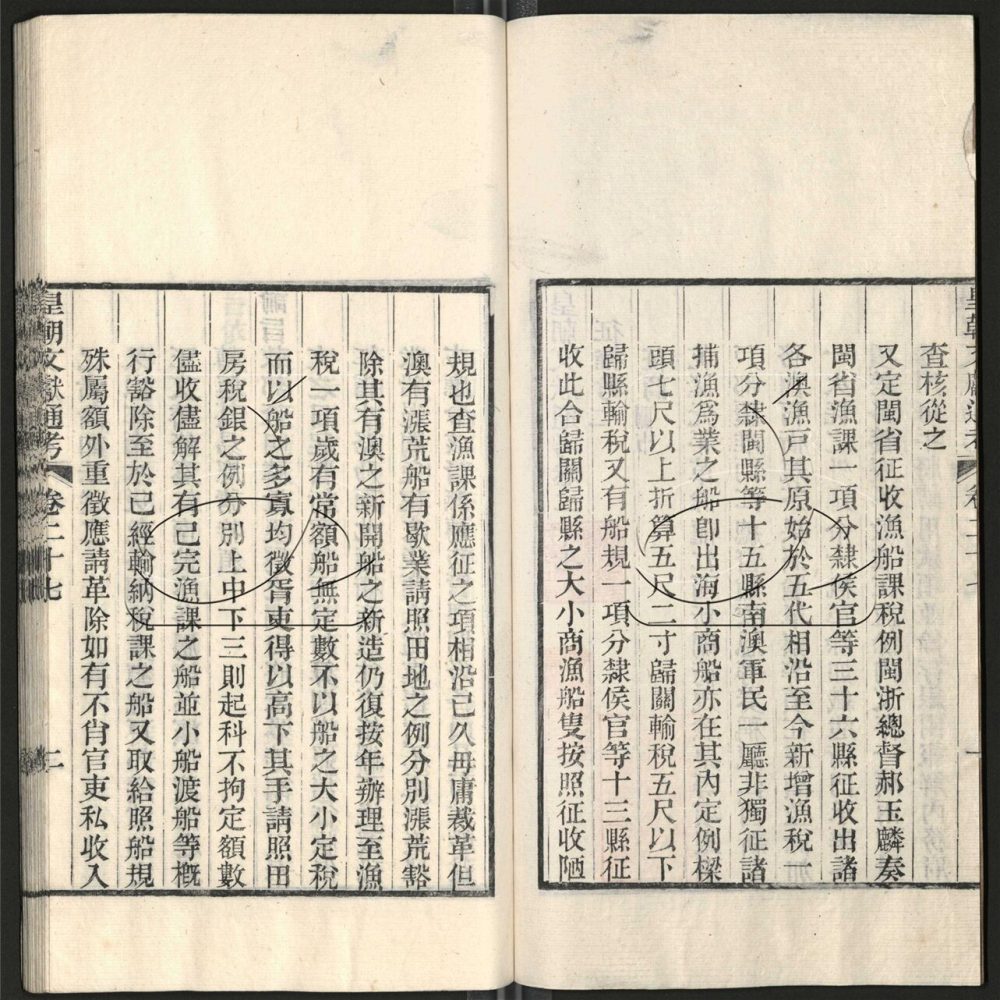 查核從之
又定閩省征收漁船課稅例閩浙總督郝玉麟奏
閩省漁課一項分隸侯官等三十六縣征收出諸
各澳漁戸其原始於五代相沿至今新增漁稅一
項分隸閩縣等十五縣南澳軍民一廳非獨征諸
捕漁爲業之船卽出海小商船亦在其內定例樑
頭七尺以上折算五尺二寸歸關輸稅五尺以下
歸縣輸稅又有船規一項分隸侯官等十三縣征
收此合歸關歸縣之大小商漁船隻按照征收陋
規也查漁課係應征之項相沿已久毋庸裁革但
澳有漲荒船有歇業請照田地之例分別漲荒豁
除其有澳之新開船之新造仍復按年辦理至漁
稅一項歲有常額船無定數不以船之大小定稅
而以船之多寡均徵胥吏得以高下其手請照田
房稅銀之例分別上中下三則起科不拘定額數
儘收儘解其有已完漁課之船並小船渡船等槪
行豁除至於已經輸納稅課之船又取給照船規
殊屬額外重徵應請革除如有不肖官吏私收入
皇朝文獻通考 卷二十七 二